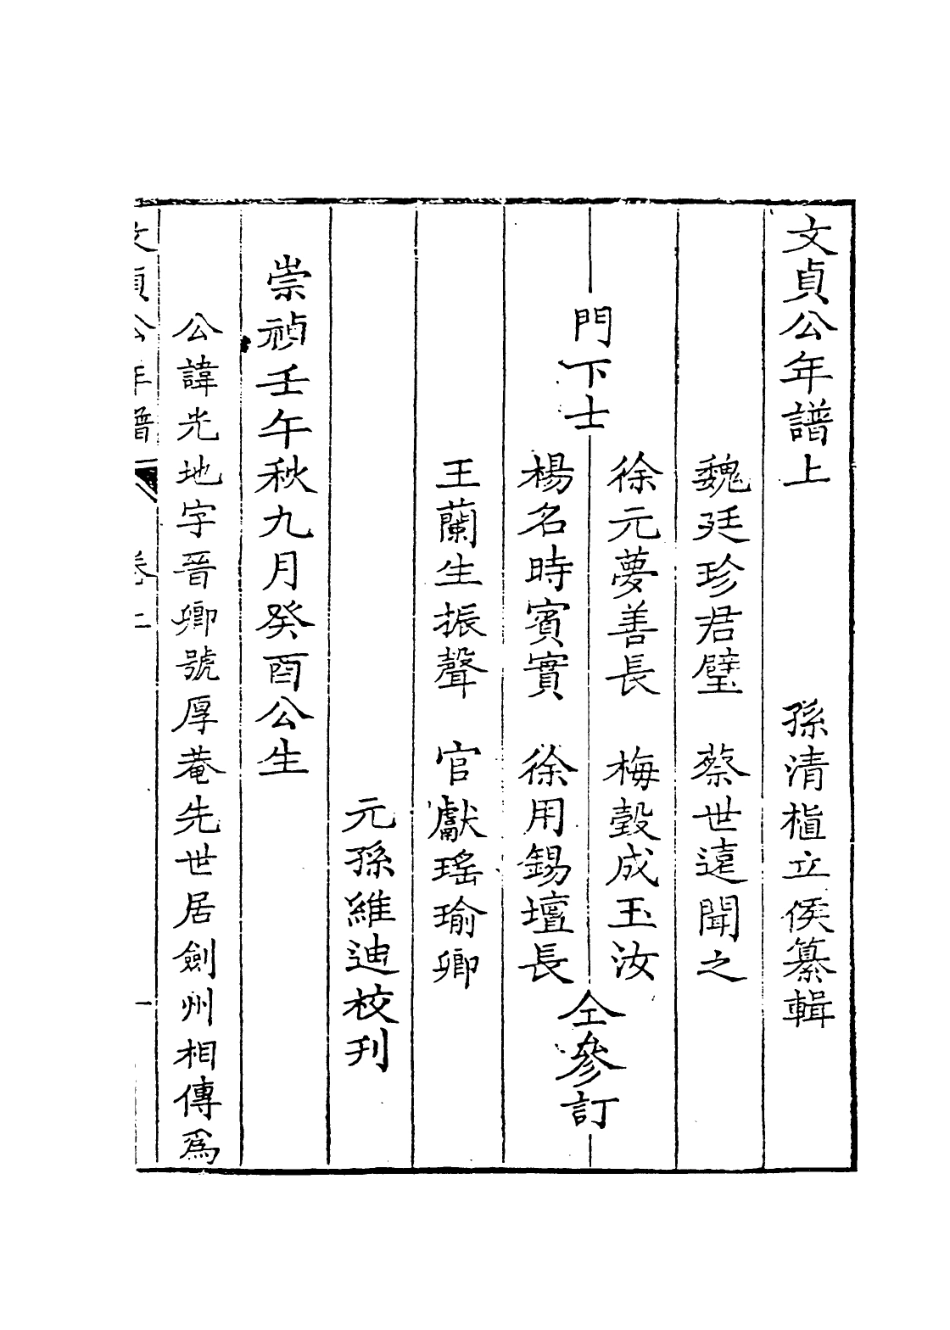 文貞公年譜上 孫清植立侯纂輯
魏廷珍君璧 蔡世遠聞之
徐元夢善長 梅㲄成玉汝
門下士 仝參訂
楊名時賓實 徐用錫壇長
王蘭生振聲 官獻瑤瑜卿
元孫維迪校刋
崇禎壬午秋九月癸酉公生
公諱光地字晉卿號厚菴先世居劍州相傳爲
文貞公年譜 卷上 一